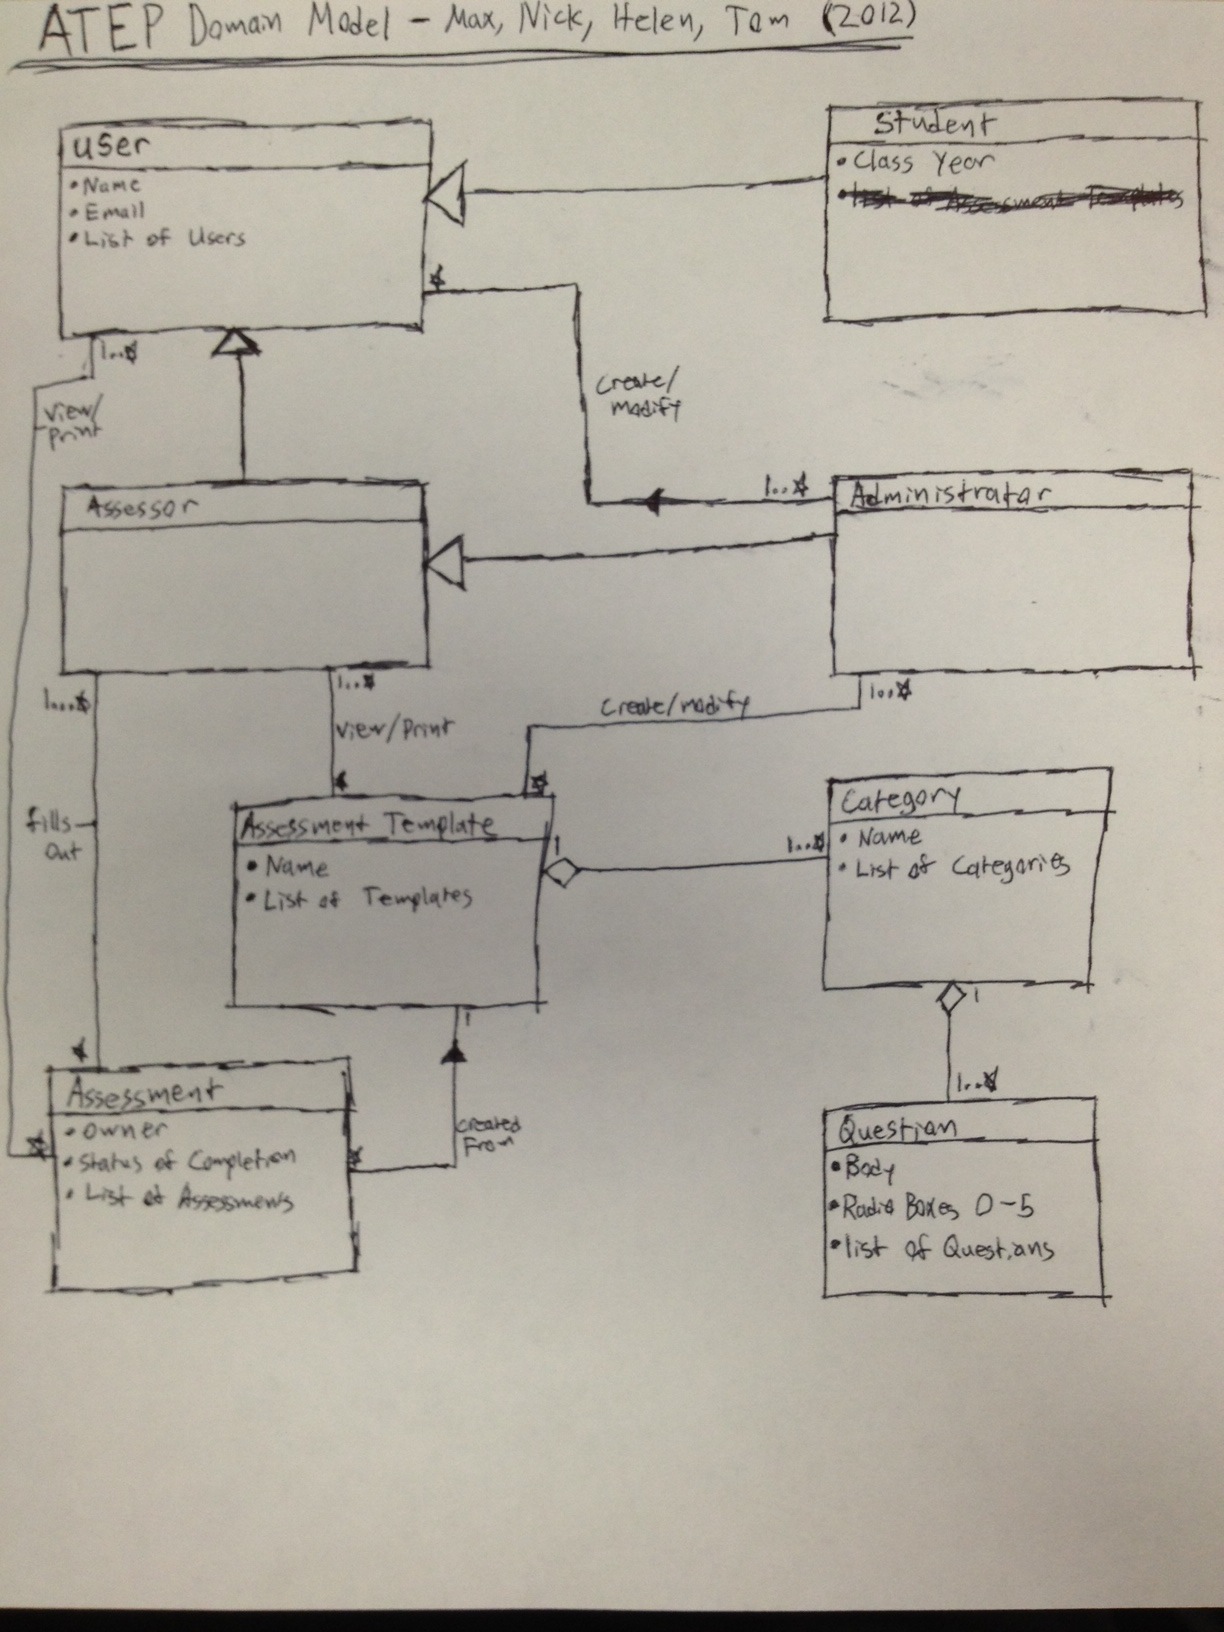 ATEP Domain Model - Max, Nick, Helen, Tom (2012)
User
• Name
• Email
• List of Users
Student
• Class Year
• List of Assessment Templates
*
1..*
View/
Print
Create/
modify
1..*
Assessor
Administrator
1...*
1..*
View/Print
Create/modify
1..*
fills
Out
*
*
Assessment Template
• Name
• List of Templates
1
1..*
Category
• Name
• List of Categories
1
1
1..*
*
Assessment
• Owner
• Status of Completion
• List of Assessments
*
*
Created
From
Question
• Body
• Radio Boxes 0-5
• list of Questions